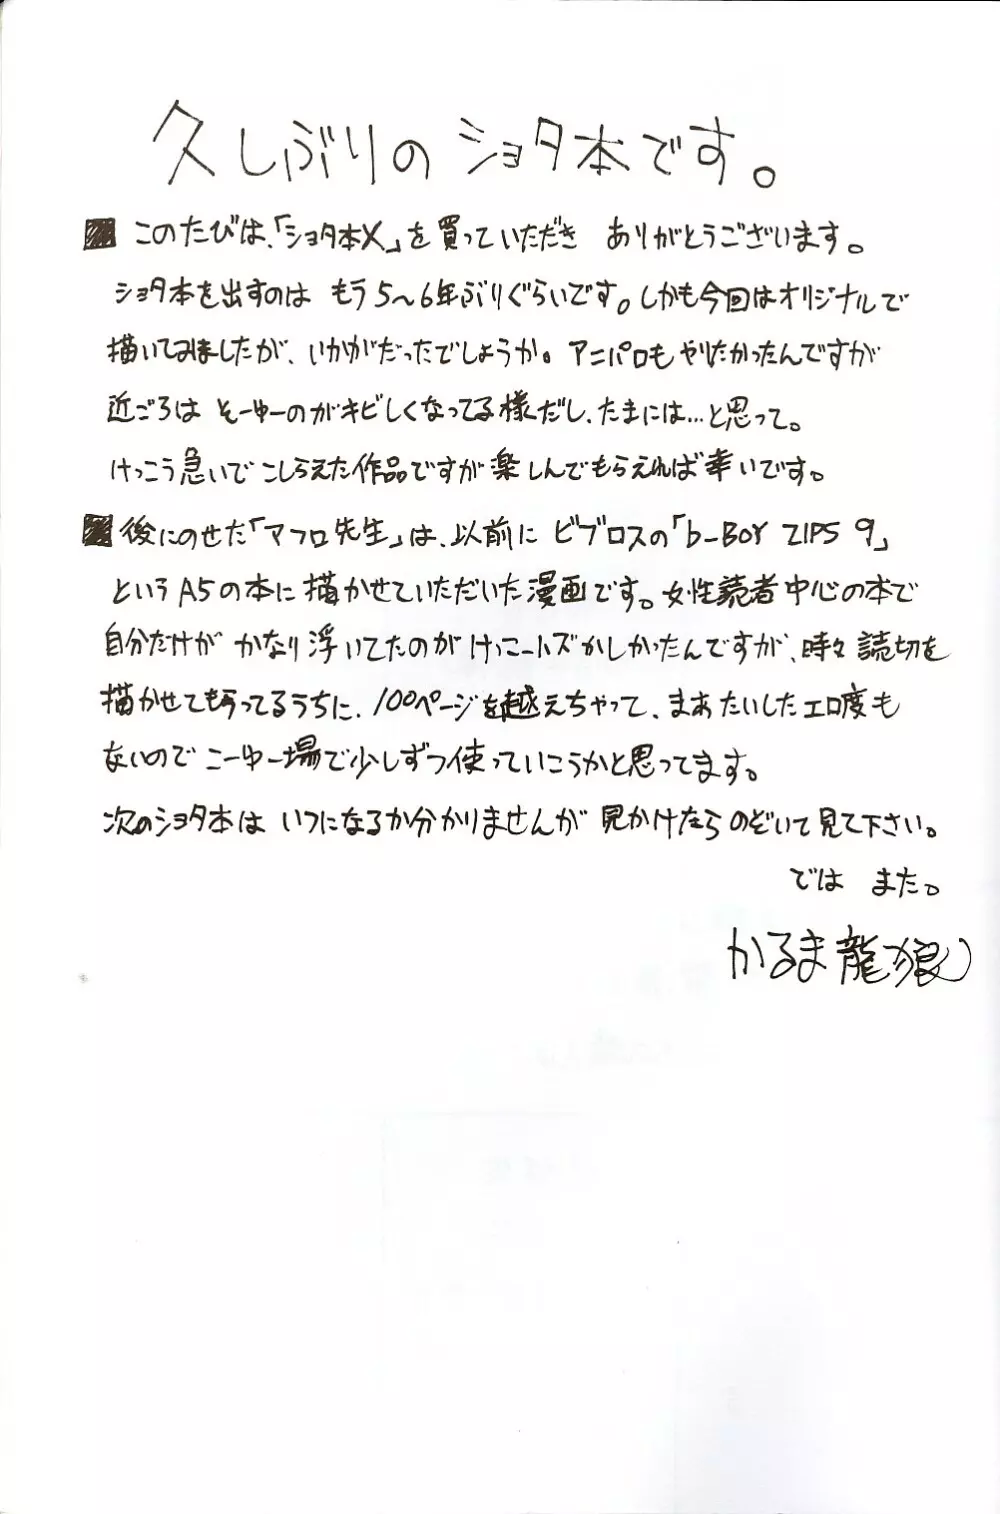 久しぶりのショタ本です。
■このたびは、「ショタ本X」を買っていただき ありがとうございます。
ショタ本を出すのは もう5〜6年ぶりぐらいです。しかも今回はオリジナルで
描いてみましたが、いかがだったでしょうか。アニパロもやりたかったんですが
近ごろは そーゆーのがキビしくなってる様だし、たまには…と思って。
けっこう急いでこしらえた作品ですが楽しんでもらえれば幸いです。
■後にのせた「アフロ先生」は、以前に ビブロスの「b-BOY ZIPS 9」
というA5の本に描かせていただいた漫画です。女性読者中心の本で
自分だけが かなり浮いてたのがけっこーハズかしかったんですが、時々読切を
描かせてもらってるうちに、100ページを越えちゃって、まあたいしたエロ度も
ないのでこーゆー場で少しずつ使っていこうかと思ってます。
次のショタ本は いつになるか分かりませんが 見かけたらのぞいて見て下さい。
では また。
かるま龍狼